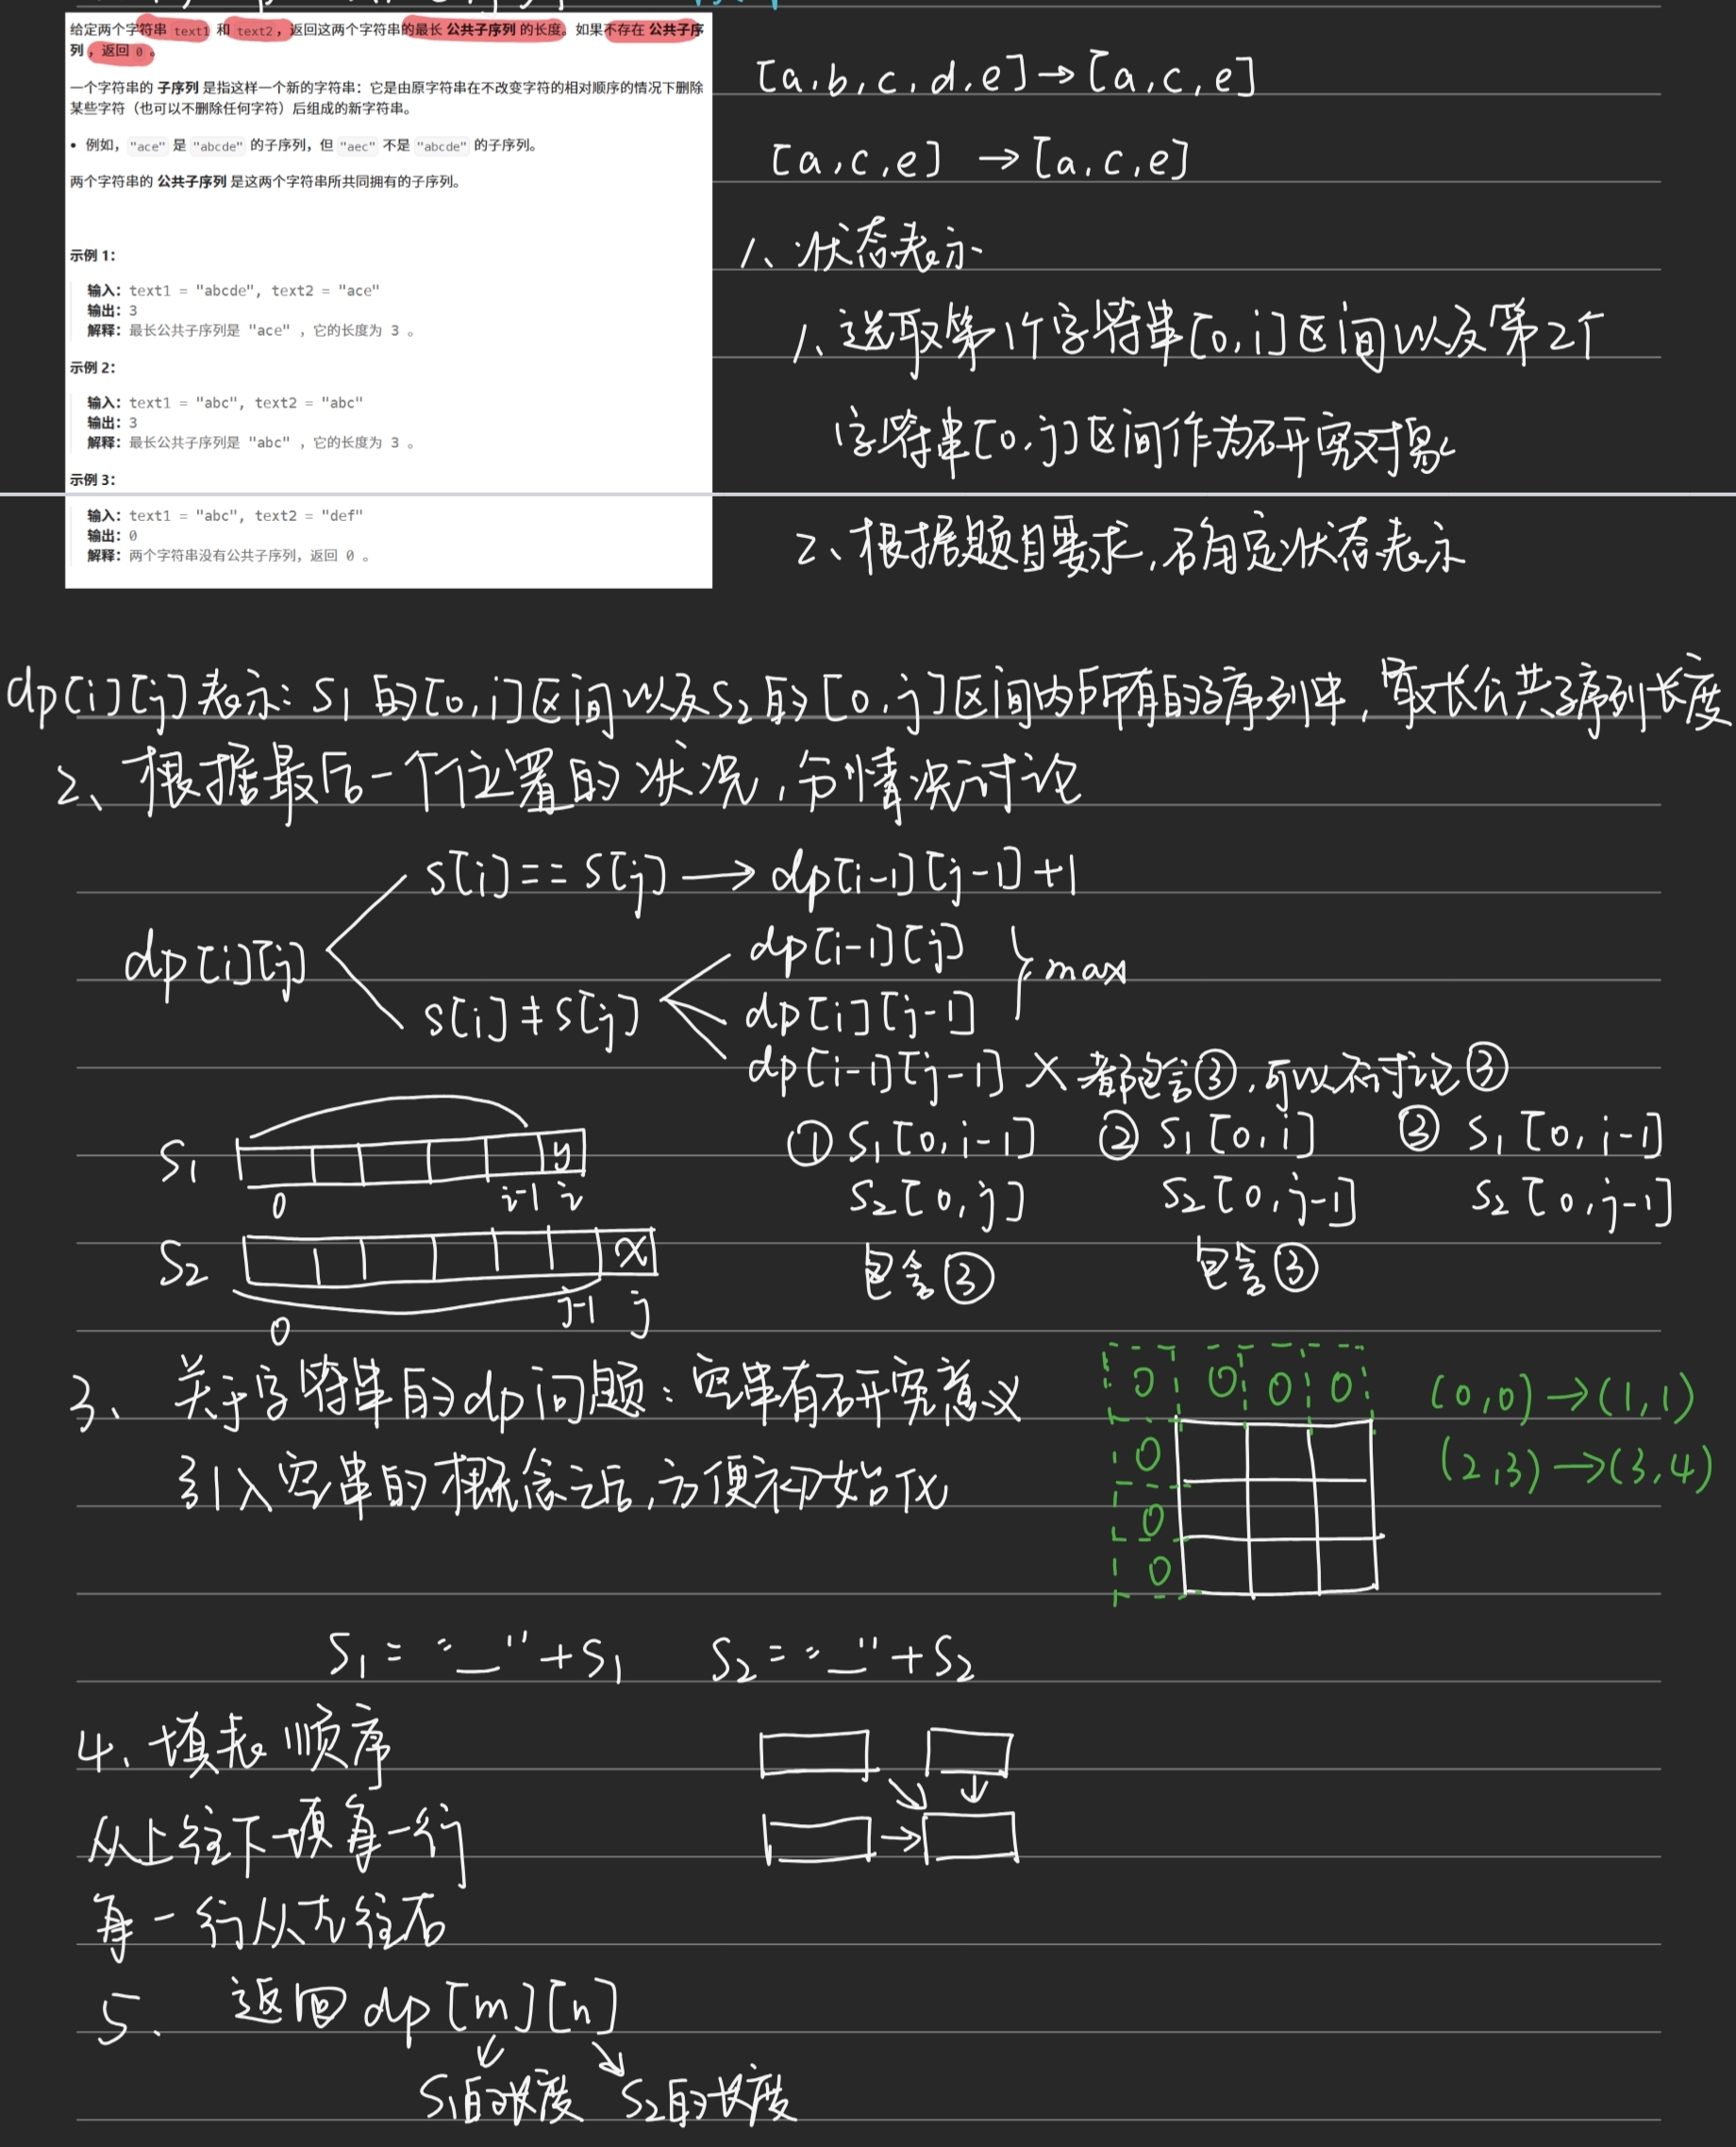 给定两个字符串 text1 和 text2，返回这两个字符串的最长 公共子序列 的长度。如果不存在 公共子序
列 ，返回 0 。
一个字符串的 子序列 是指这样一个新的字符串：它是由原字符串在不改变字符的相对顺序的情况下删除
某些字符（也可以不删除任何字符）后组成的新字符串。
• 例如，"ace" 是 "abcde" 的子序列，但 "aec" 不是 "abcde" 的子序列。
两个字符串的 公共子序列 是这两个字符串所共同拥有的子序列。
示例 1：
输入：text1 = "abcde", text2 = "ace"
输出：3
解释：最长公共子序列是 "ace" ，它的长度为 3 。
示例 2：
输入：text1 = "abc", text2 = "abc"
输出：3
解释：最长公共子序列是 "abc" ，它的长度为 3 。
示例 3：
输入：text1 = "abc", text2 = "def"
输出：0
解释：两个字符串没有公共子序列，返回 0 。
[a,b,c,d,e]→[a,c,e]
[a,c,e] →[a,c,e]
1、状态表示
1、选取第1个字符串[0,i]区间以及第2个
字符串[0,j]区间作为研究对象
2、根据题目要求，确定状态表示
dp[i][j]表示：S1的[0,i]区间以及S2的[0,j]区间内所有的子序列中，最长公共子序列长度
2、根据最后一个位置的状况，分情况讨论
s[i]==s[j]→dp[i-1][j-1]+1
dp[i][j]
dp[i-1][j]
max
s[i]≠s[j]
dp[i][j-1]
dp[i-1][j-1] × 都包含③，可以不讨论③
S1
y
0 i-1 i
S2
x
0 j-1 j
① S1[0,i-1] ② S1[0,i] ③ S1[0,i-1]
S2[0,j] S2[0,j-1] S2[0,j-1]
包含③ 包含③
3、关于字符串的dp问题：空串有研究意义
引入空串的概念之后，方便初始化
0 0 0 0
0
0
0
(0,0)→(1,1)
(2,3)→(3,4)
S1=" "+S1 S2=" "+S2
4、填表顺序
从上往下填每一行
每一行从左往右
5、返回dp[m][n]
S1的长度 S2的长度